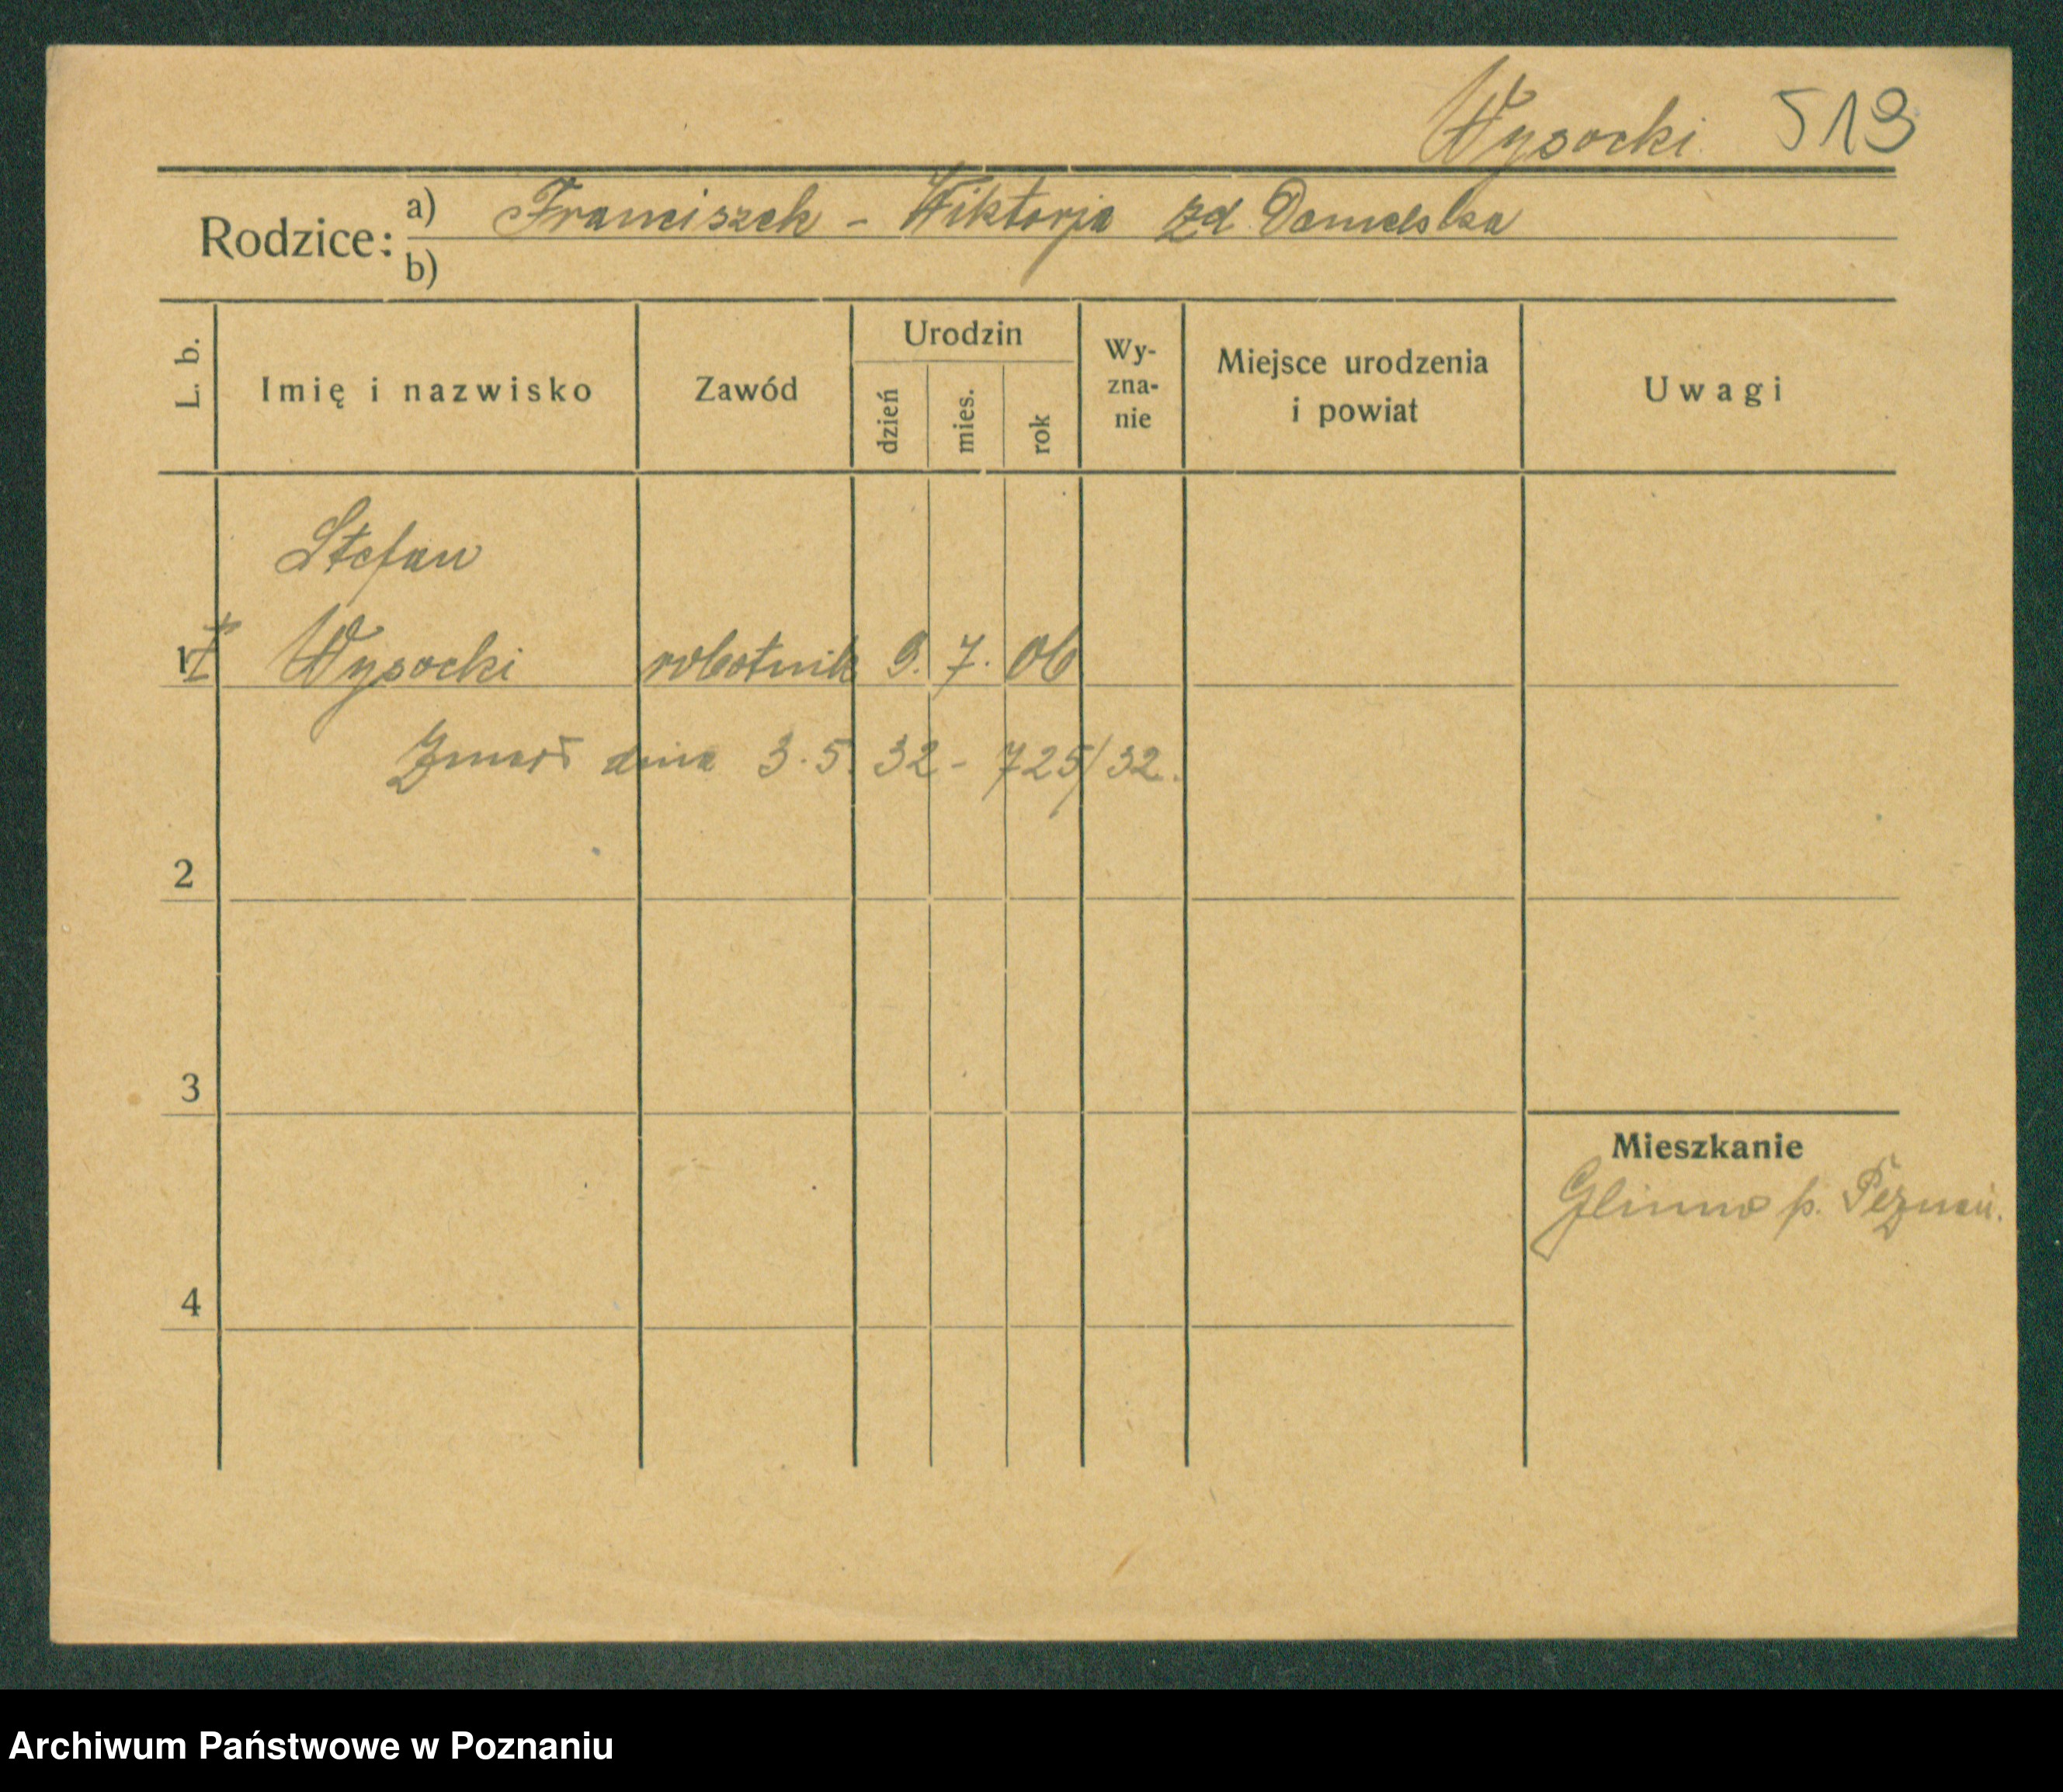 Wysocki 519
Rodzice: a) Franciszek - Wiktorja zd Danielska
b)
L. b.
Imię i nazwisko
Zawód
Urodzin
dzień
mies.
rok
Wy-
zna-
nie
Miejsce urodzenia
i powiat
Uwagi
Stefan
1 Wysocki robotnik 9. 7. 06
Zmarł dnia 3.5.32 - 725/32.
2
3
Mieszkanie
Glinno p. Poznań.
4
Archiwum Państwowe w Poznaniu